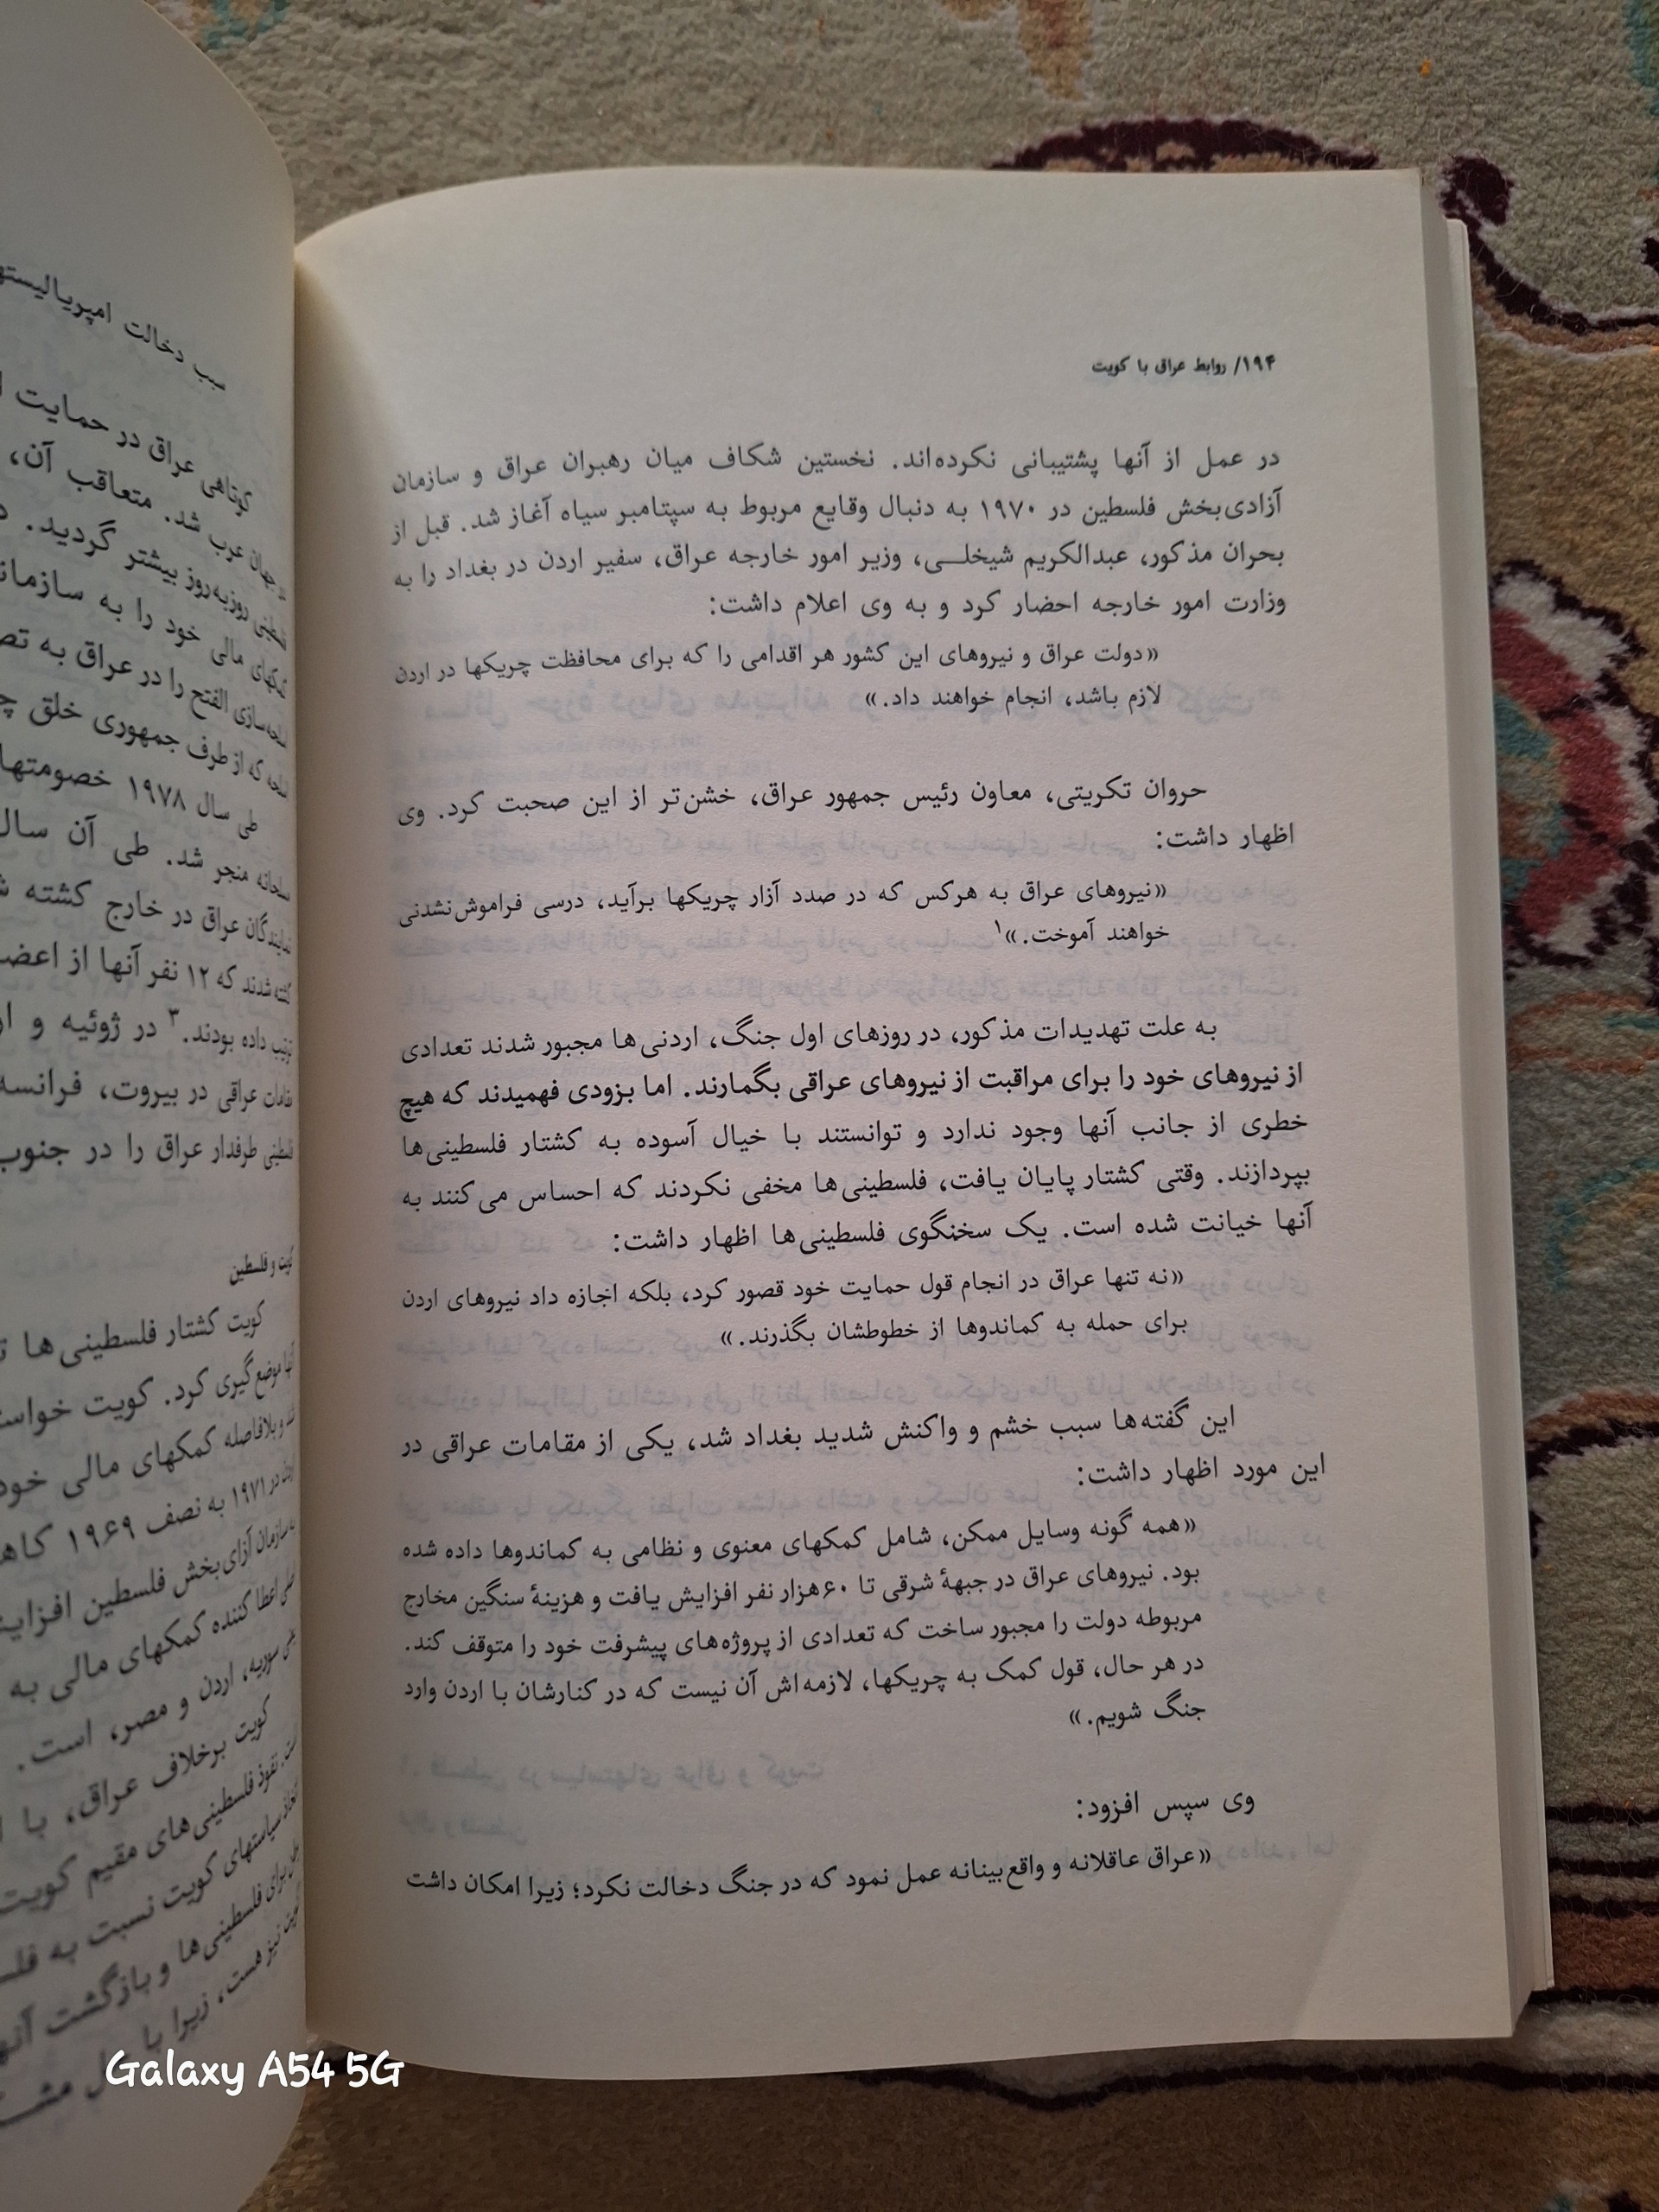 ۱۹۴/ روابط عراق با کویت
در عمل از آنها پشتیبانی نکرده‌اند. نخستین شکاف میان رهبران عراق و سازمان
آزادی‌بخش فلسطین در ۱۹۷۰ به دنبال وقایع مربوط به سپتامبر سیاه آغاز شد. قبل از
بحران مذکور، عبدالکریم شیخلـــی، وزیر امور خارجه عراق، سفیر اردن در بغداد را به
وزارت امور خارجه احضار کرد و به وی اعلام داشت:
«دولت عراق و نیروهای این کشور هر اقدامی را که برای محافظت چریکها در اردن
لازم باشد، انجام خواهند داد.»
حروان تکریتی، معاون رئیس جمهور عراق، خشن‌تر از این صحبت کرد. وی
اظهار داشت:
«نیروهای عراق به هرکس که در صدد آزار چریکها برآید، درسی فراموش‌نشدنی
خواهند آموخت.»۱
به علت تهدیدات مذکور، در روزهای اول جنگ، اردنی‌ها مجبور شدند تعدادی
از نیروهای خود را برای مراقبت از نیروهای عراقی بگمارند. اما بزودی فهمیدند که هیچ
خطری از جانب آنها وجود ندارد و توانستند با خیال آسوده به کشتار فلسطینی‌ها
بپردازند. وقتی کشتار پایان یافت، فلسطینی‌ها مخفی نکردند که احساس می‌کنند به
آنها خیانت شده است. یک سخنگوی فلسطینی‌ها اظهار داشت:
«نه تنها عراق در انجام قول حمایت خود قصور کرد، بلکه اجازه داد نیروهای اردن
برای حمله به کماندوها از خطوطشان بگذرند.»
این گفته‌ها سبب خشم و واکنش شدید بغداد شد، یکی از مقامات عراقی در
این مورد اظهار داشت:
«همه گونه وسایل ممکن، شامل کمکهای معنوی و نظامی به کماندوها داده شده
بود. نیروهای عراق در جبههٔ شرقی تا ۶۰هزار نفر افزایش یافت و هزینهٔ سنگین مخارج
مربوطه دولت را مجبور ساخت که تعدادی از پروژه‌های پیشرفت خود را متوقف کند.
در هر حال، قول کمک به چریکها، لازمه‌اش آن نیست که در کنارشان با اردن وارد
جنگ شویم.»
وی سپس افزود:
«عراق عاقلانه و واقع‌بینانه عمل نمود که در جنگ دخالت نکرد؛ زیرا امکان داشت
سبب دخالت
کوتاهی عراق در حمایت
جهان عرب شد. متعاقب آن،
روزبه‌روز بیشتر گردید.
مالی خود را به
الفتح را در عراق به
که از طرف جمهوری خلق
طی سال ۱۹۷۸
منجر شد. طی آن سال
عراق در خارج کشته
شدند که ۱۲ نفر آنها از
داده بودند.۳ در ژوئیه و
عراقی در بیروت، فرانسه
طرفدار عراق را در جنوب
کویت و فلسطین
کویت کشتار فلسطینی‌ها
موضع‌گیری کرد. کویت
بلافاصله کمکهای مالی خود
در ۱۹۷۱ به نصف ۱۹۶۹
سازمان آزادی‌بخش فلسطین
اعطا کننده کمکهای مالی به
سوریه، اردن و مصر، است.
کویت برخلاف عراق، با
نفوذ فلسطینی‌های مقیم کویت
سیاستهای کویت نسبت به
برای فلسطینی‌ها و بازگشت
نیز هست، زیرا با
Galaxy A54 5G